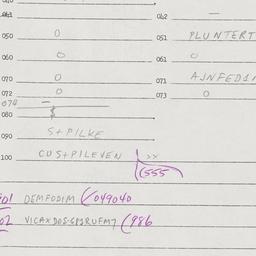 041 042 —
050 0 051 PLUNTERT
060 0 061 0
070 0 071 AJNFEDI
072 0 073 0
074 —
080
090 S+PILKE
100 CUS+PILEVEN xx
(555
DEMFODIM (049040
02 (986